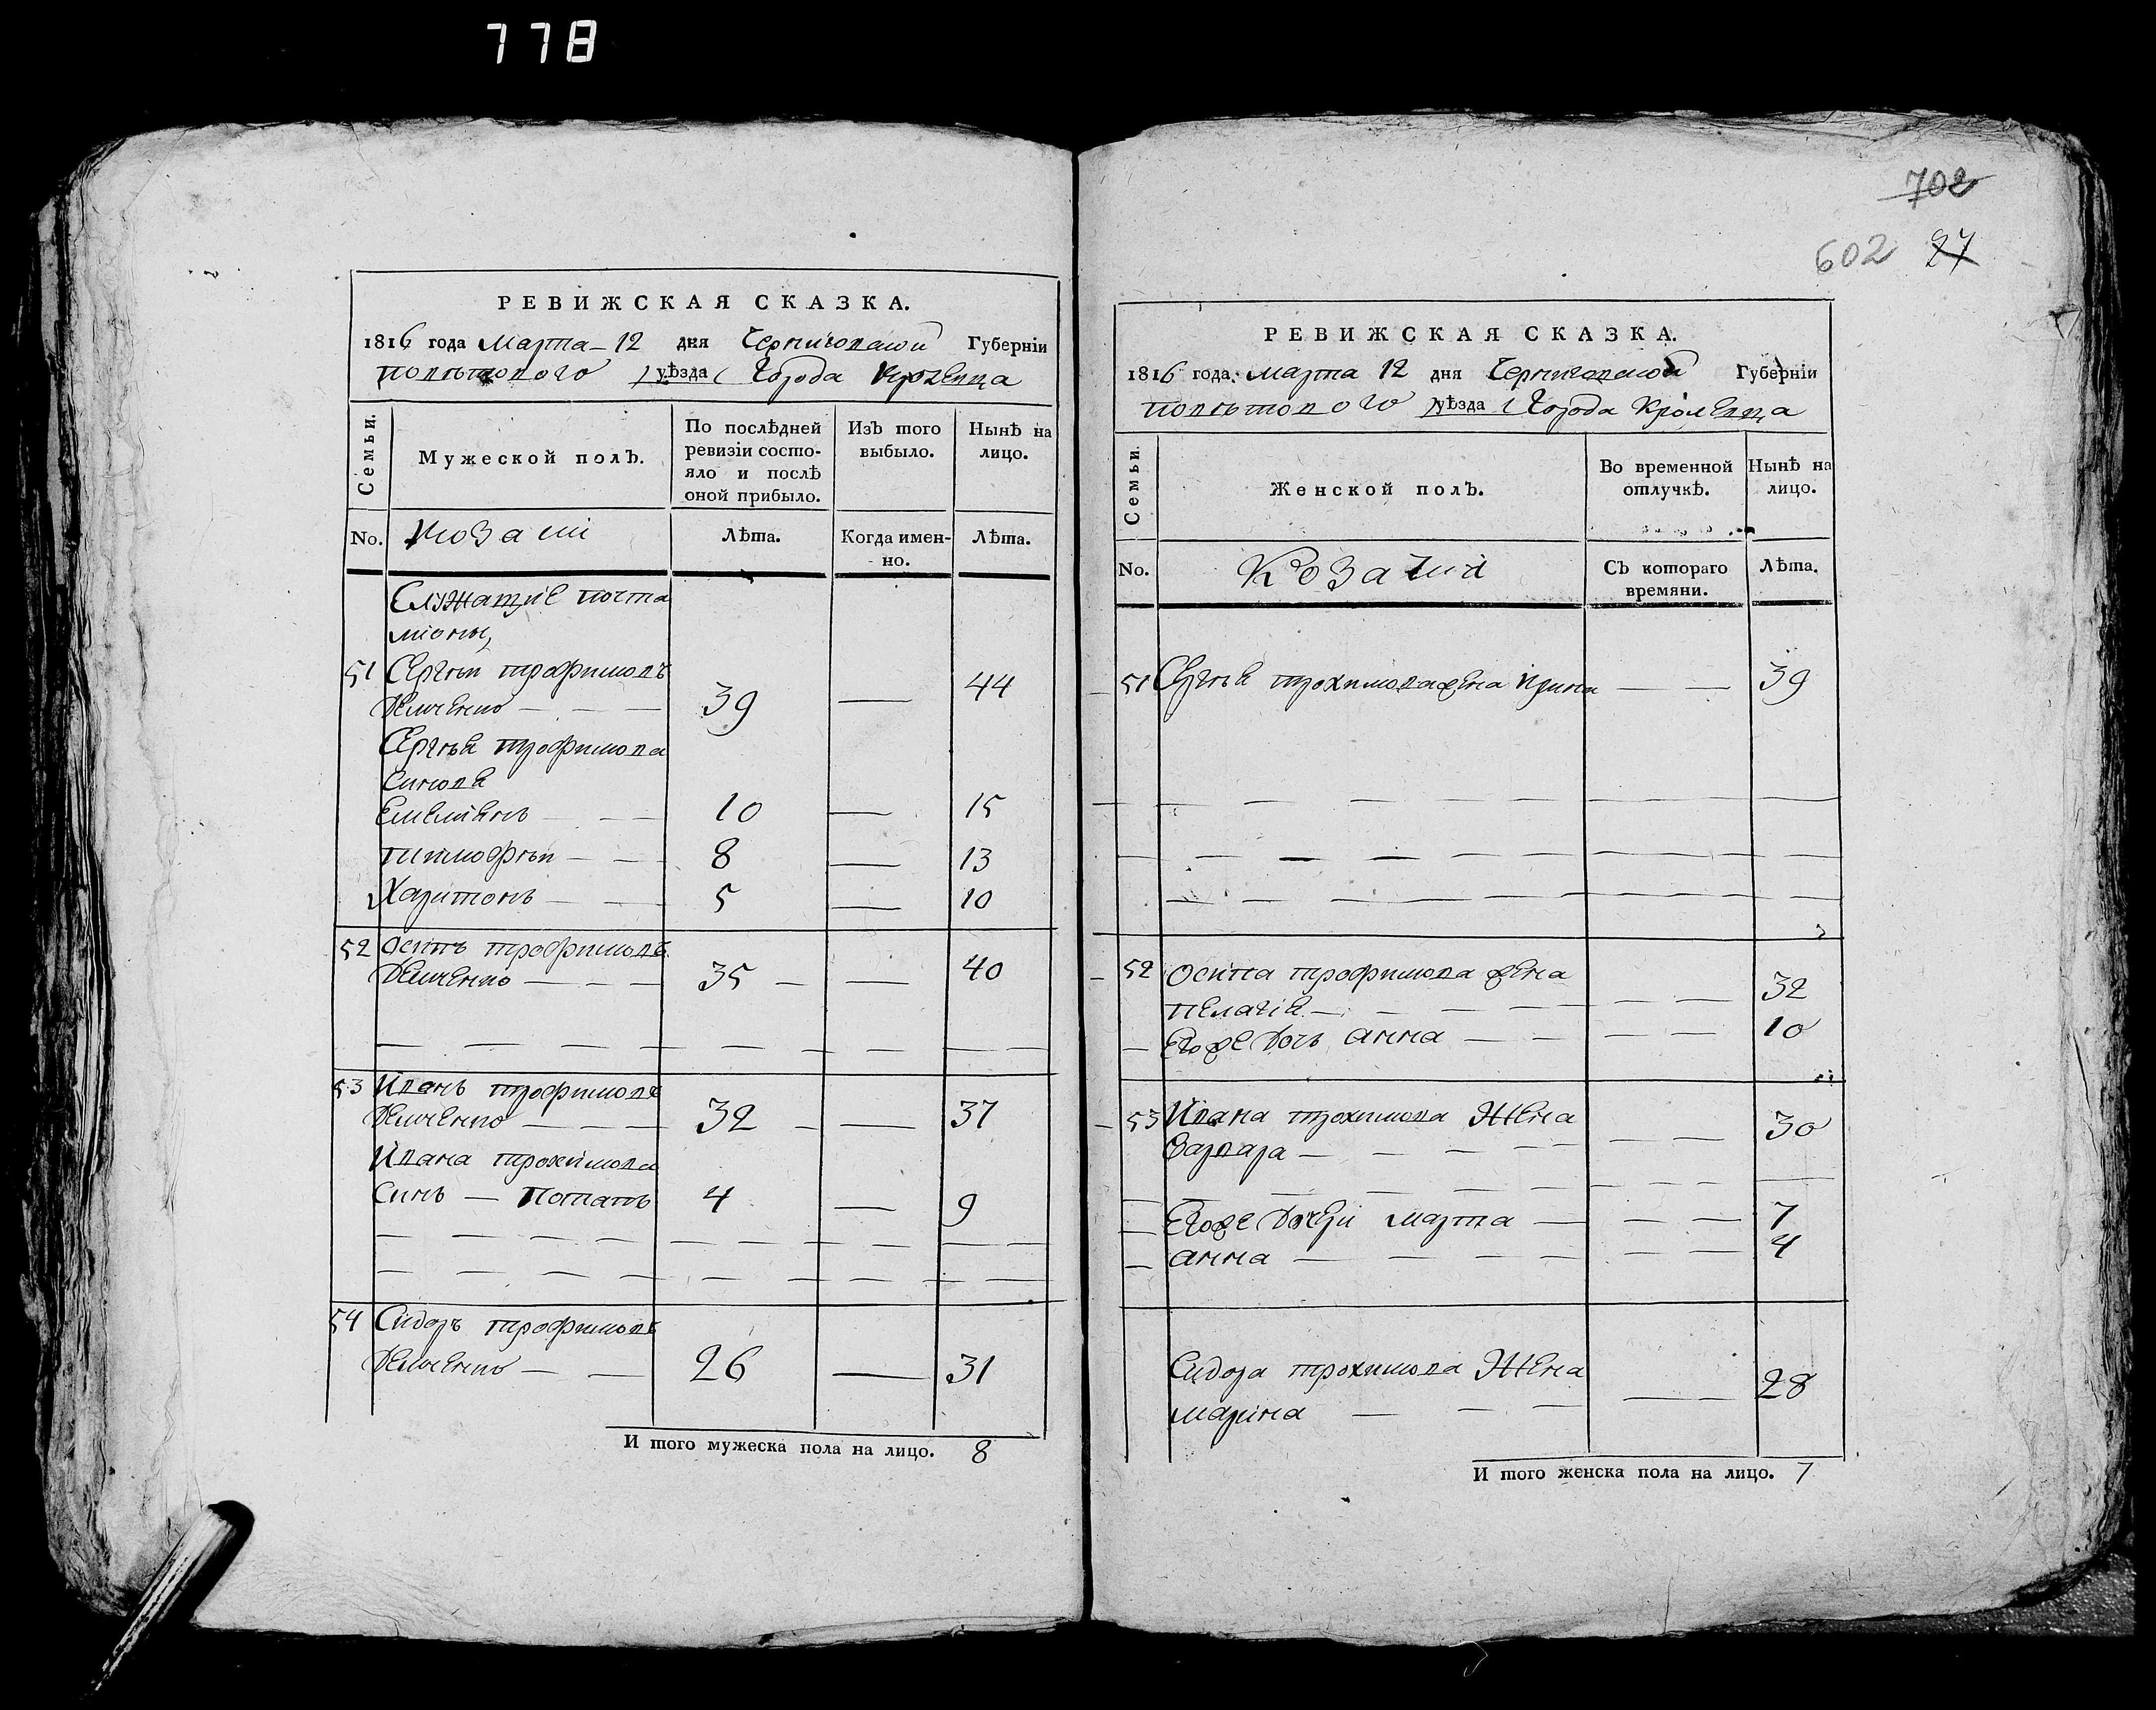 778
РЕВИЖСКАЯ СКАЗКА.
1816 года Марта 12 дня Черниговской Губерніи
поветового уѣзда Города Кролевца
Семьи.
Мужеской полЪ.
По послѣдней ревизіи состо-
яло и послѣ оной прибыло.
ИзЪ того выбыло.
Нынѣ на лицо.
No.
Козаки
Лѣта.
Когда имен-
но.
Лѣта.
Служащие почта
лионы,
51 Сергѣй трофимовъ
Демченко — — — 39 — 44
Сергѣя трофимова
Синове
Емелиянъ — — 10 — 15
тимофѣй — — 8 — 13
Харитонъ — — 5 — 10
52 Осипъ трофимовъ
Демченко — — — 35 — — 40
53 Иванъ трофимовъ
Демченко — — — 32 — — 37
Ивана трохимова
Синъ — Потапъ 4 — 9
54 Сидоръ трофимовъ
Демченко — — 26 — 31
И того мужеска пола на лицо. 8
702
602 27
РЕВИЖСКАЯ СКАЗКА.
1816 года Марта 12 дня Черниговской Губерніи
поветового уѣзда Города Кролевца
Семьи.
Женской полЪ.
Во временной отлучкѣ.
Нынѣ на лицо.
No.
Козачкі
СЪ котораго времяни.
Лѣта.
51 Сергѣя трохимова жена Ирина — — 39
52 Осипа трофимова жена
Пелагія — — — — — 32
Егоже Дочь анна — — — — 10
53 Ивана трохимова Жена
Варвара — — — — — 30
Егоже Дочери марта — — — 7
анна — — — — — 4
Сидора трохимова Жена
марина — — — — — 28
И того женска пола на лицо. 7